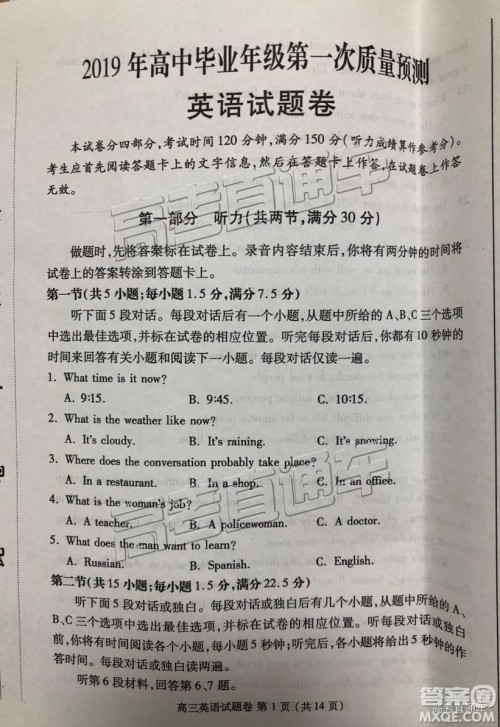 2019年高中毕业年级第一次质量预测
英语试题卷
本试卷分四部分,考试时间120分钟,满分150分(听力成绩算作参考分)。
考生应首先阅读答题卡上的文字信息,然后在答题卡上作答,在试题卷上作答
无效。
第一部分 听力(共两节,满分30分)
做题时,先将答案标在试卷上。录音内容结束后,你将有两分钟的时间将
试卷上的答案转涂到答题卡上。
第一节(共5小题;每小题1.5分,满分7.5分)
听下面5段对话。每段对话后有一个小题,从题中所给的A、B、C三个选项
中选出最佳选项,并标在试卷的相应位置。听完每段对话后,你都有10秒钟的
时间来回答有关小题和阅读下一小题。每段对话仅读一遍。
1. What time is it now?
A. 9:15. B. 9:45. C. 10:15.
2. What is the weather like now?
A. It's cloudy. B. It's raining. C. It's snowing.
3. Where does the conversation probably take place?
A. In a restaurant. B. In a shop. C. In an office.
4. What is the woman's job?
A. A teacher. B. A policewoman. C. A doctor.
5. What does the man want to learn?
A. Russian. B. Spanish. C. English.
第二节(共15小题;每小题1.5分,满分22.5分)
听下面5段对话或独白。每段对话或独白后有几个小题,从题中所给的A、
B、C三个选项中选出最佳选项,并标在试卷的相应位置。听每段对话或独白前,
你将有时间阅读各个小题,每小题5秒钟;听完后,各小题将给出5秒钟的作答时
间。每段对话或独白读两遍。
听第6段材料,回答第6、7题。
高三英语试题卷 第1页 (共14页)
高考直通车
高考直通车
答案圈
MXQE.COM